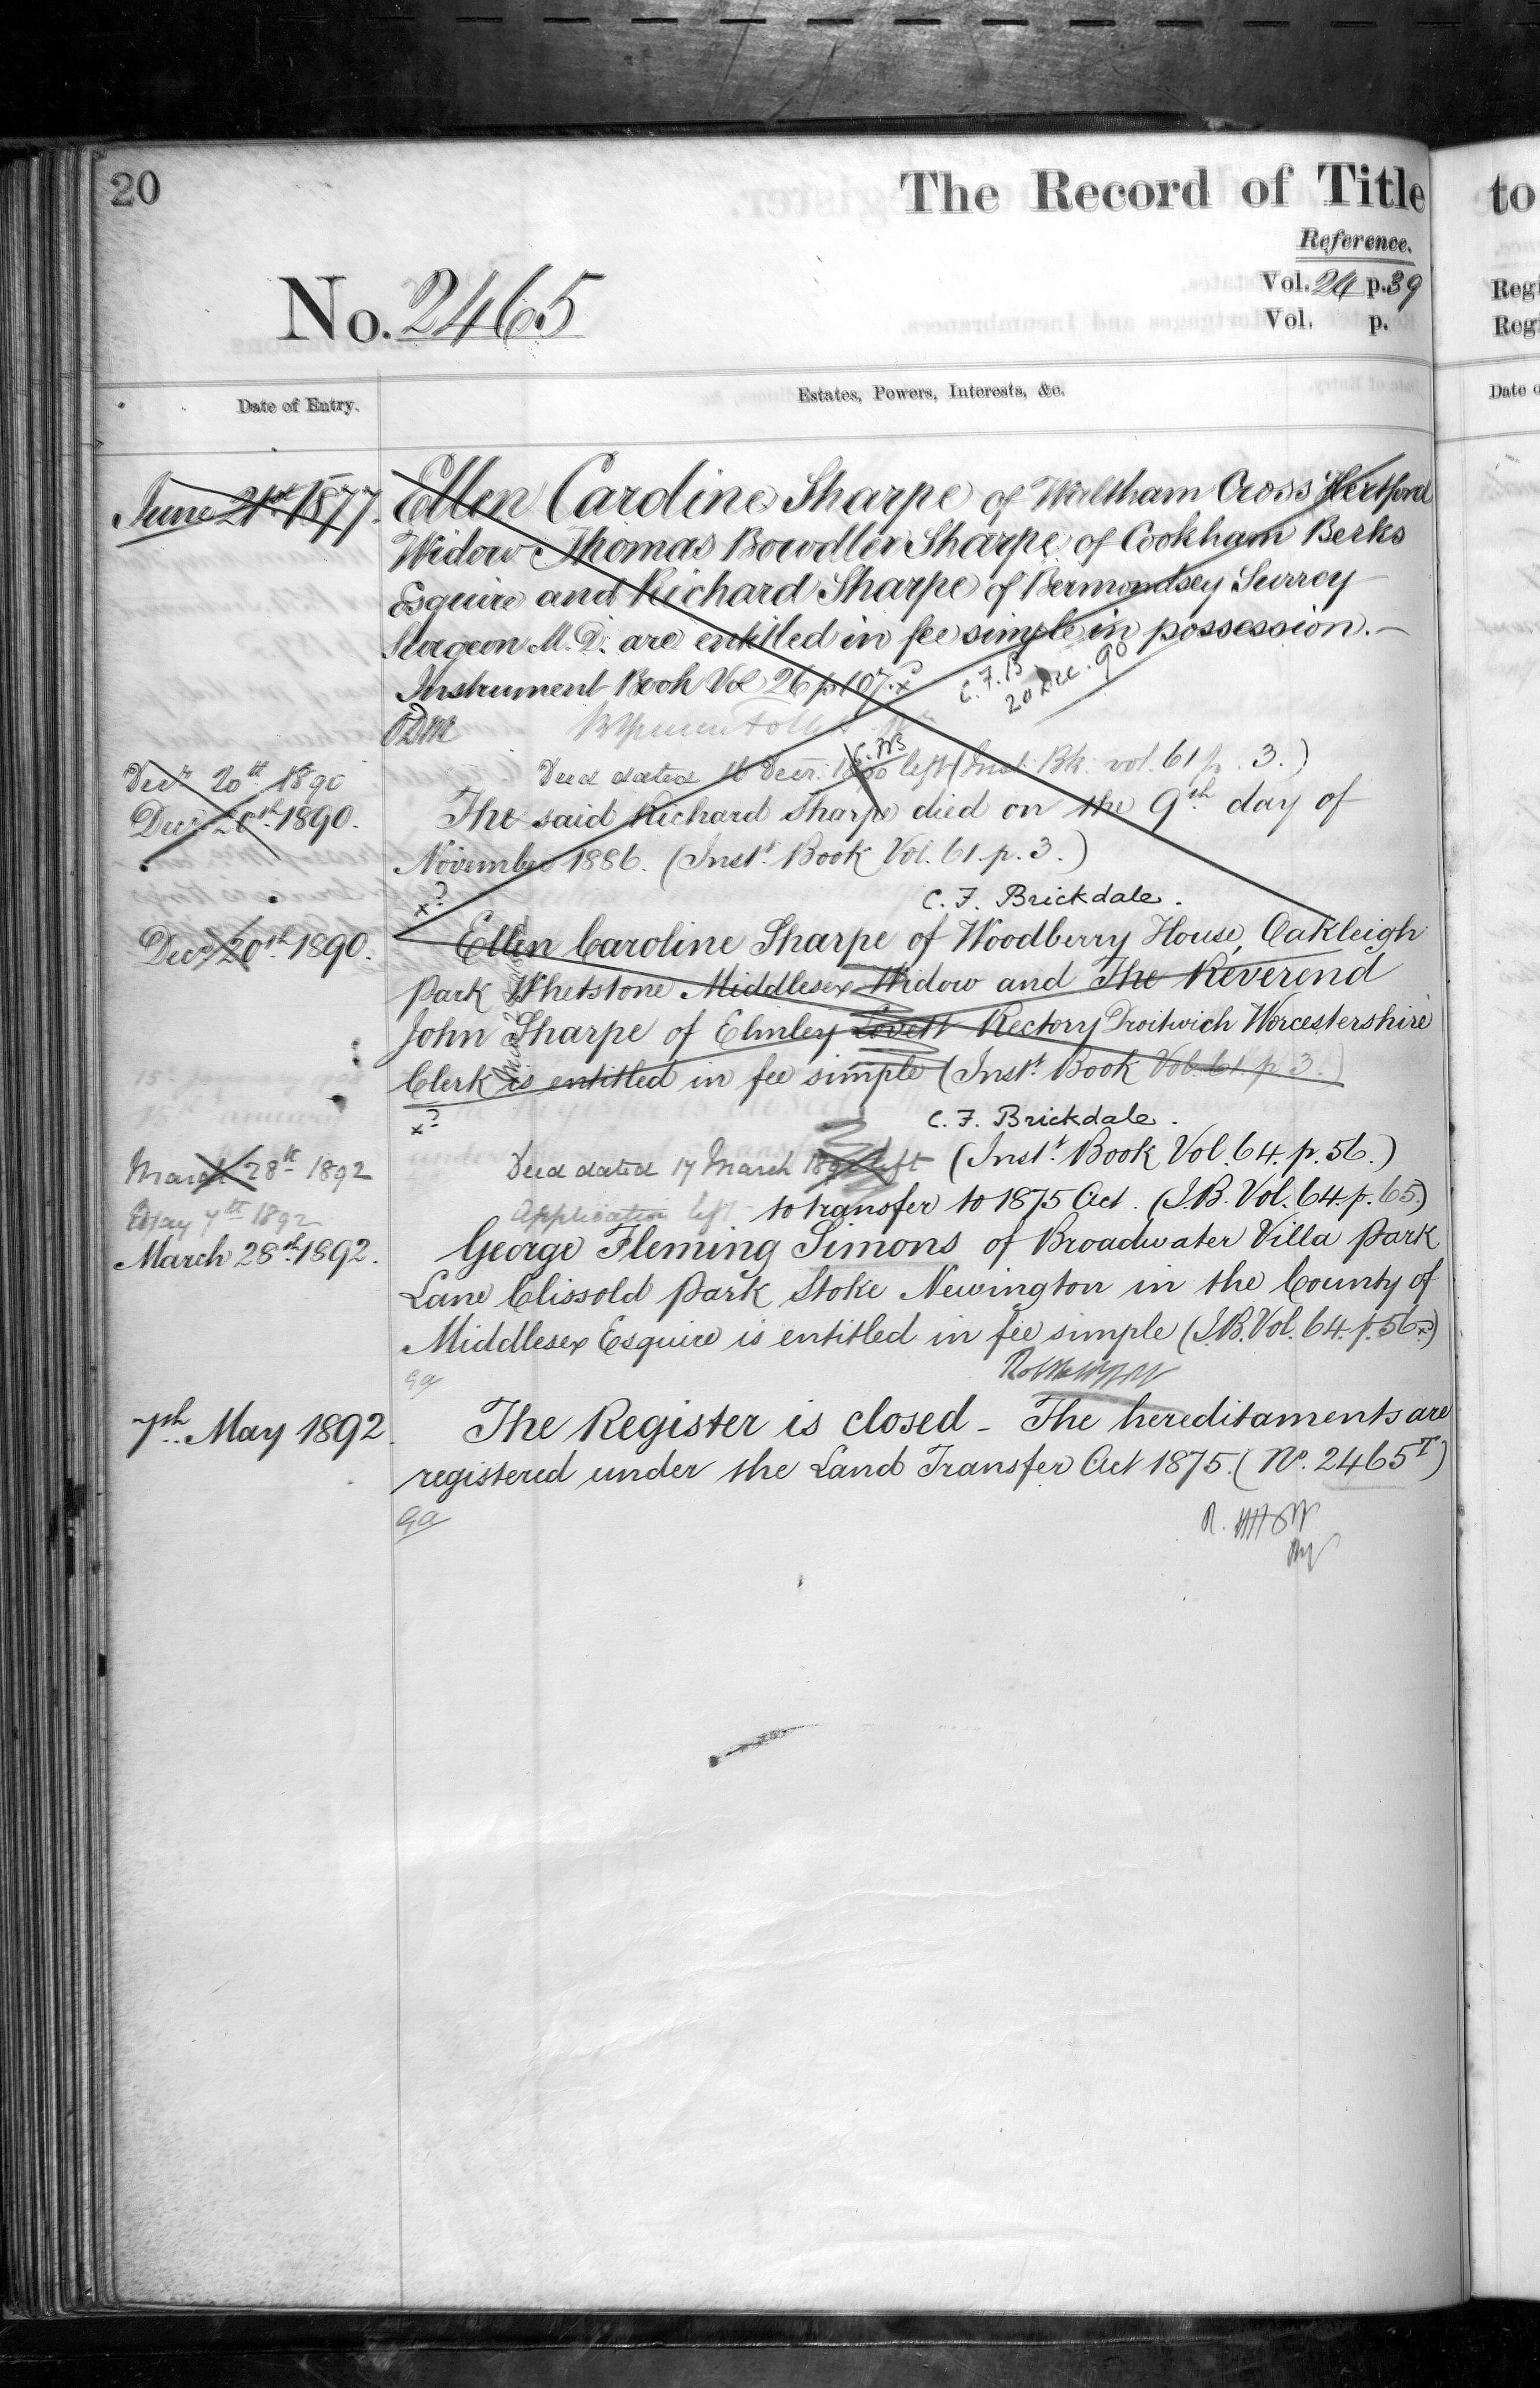 20
The Record of Title
Reference.
No. 2465
Vol. 24 p. 39
Vol. p.
Date of Entry.
Estates, Powers, Interests, &c.
June 21st 1877. Ellen Caroline Sharpe of Waltham Cross Hertford
Widow Thomas Bowdler Sharpe of Cookham Berks
Esquire and Richard Sharpe of Bermondsey Surrey
Surgeon M.D. are entitled in fee simple in possession.—
Instrument Book Vol 26 p 107.
C.F.B
20 Dec. 90
Decr 20th 1890 Deed dated 16 Decr. left (Inst. Bk. vol. 61 p. 3.)
C.F.B
Decr 20th 1890. The said Richard Sharpe died on the 9th day of
November 1886. (Inst. Book Vol. 61. p. 3.)
C. F. Brickdale.
Decr 20th 1890. Ellen Caroline Sharpe of Woodberry House, Oakleigh
Park Whetstone Middlesex Widow and The Reverend
John Sharpe of Elmley Lovett Rectory Droitwich Worcestershire
Clerk is entitled in fee simple (Inst. Book Vol. 61. p 3.)
C. F. Brickdale.
March 28th 1892 Deed dated 17 March 1892 left (Inst. Book Vol. 64. p. 56.)
May 7th 1892 Application left to transfer to 1875 Act. (I.B. Vol. 64. p. 65.)
March 28th 1892. George Fleming Simons of Broadwater Villa Park
Lane Clissold Park Stoke Newington in the County of
Middlesex Esquire is entitled in fee simple (I.B. Vol. 64. p. 56.)
7th May 1892. The Register is closed - The hereditaments are
registered under the Land Transfer Act 1875. (No. 2465T)
to
Regi
Regi
Date o